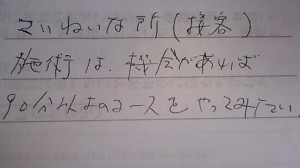 ていねいな所(接客)
施術は、機会があれば
90分以上のコースをやってみたい